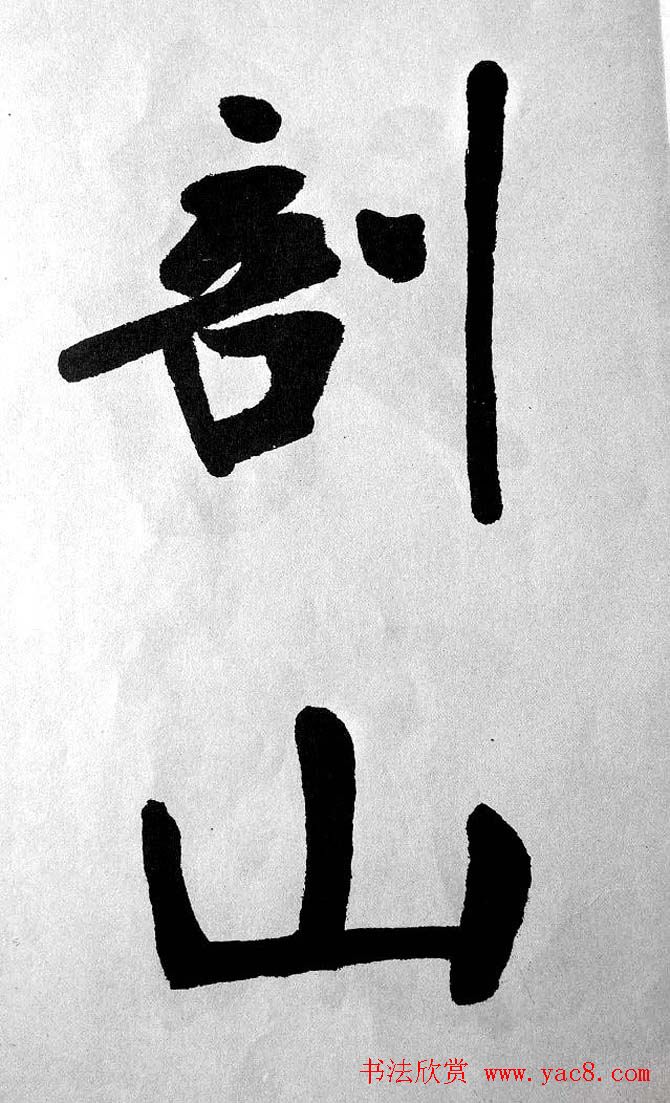 剖山
书法欣赏 www.yac8.com